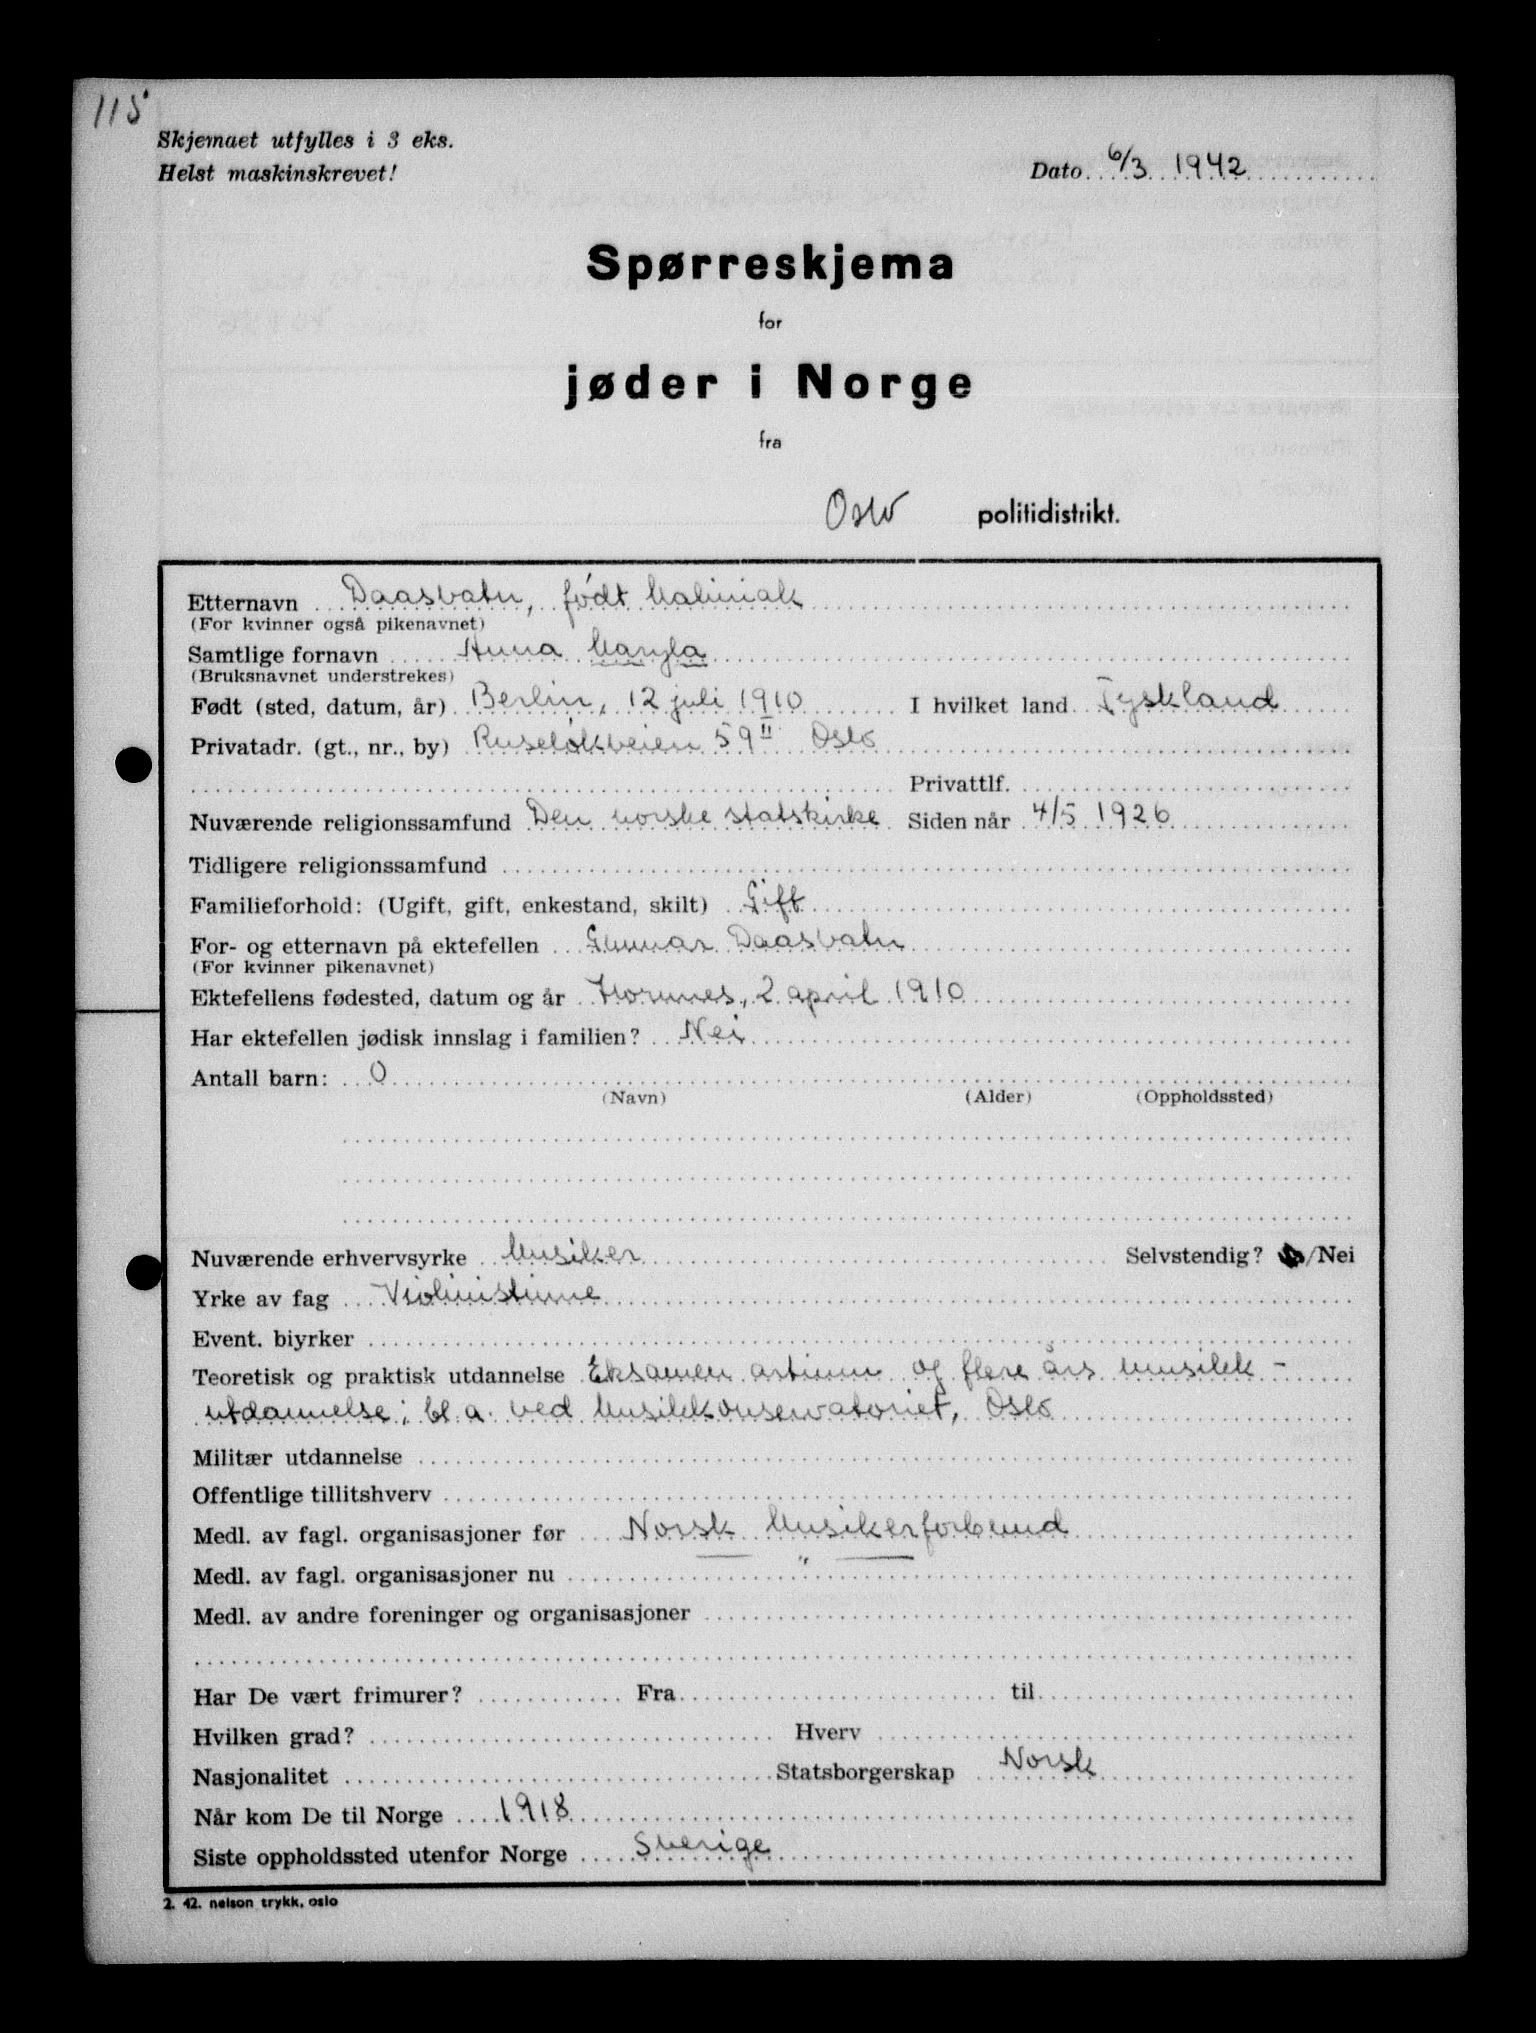 115
Skjemaet utfylles i 3 eks.
Helst maskinskrevet!
Dato 6/3 1942
Spørreskjema
for
jøder i Norge
fra
Oslo politidistrikt.
Etternavn Daasvatn, født Maliniak
(For kvinner også pikenavnet)
Samtlige fornavn Anna Maryla
(Bruksnavnet understrekes)
Født (sted, datum, år) Berlin, 12 juli 1910 I hvilket land Tyskland
Privatadr. (gt., nr., by) Ruseløkveien 59 II Oslo
Privattlf.
Nuværende religionssamfund Den norske statskirke Siden når 4/5 1926
Tidligere religionssamfund
Familieforhold: (Ugift, gift, enkestand, skilt) Gift
For- og etternavn på ektefellen Gunnar Daasvatn
(For kvinner pikenavnet)
Ektefellens fødested, datum og år Hornnes, 2 april 1910
Har ektefellen jødisk innslag i familien? Nei
Antall barn: 0
(Navn) (Alder) (Oppholdssted)
Nuværende erhvervsyrke Musiker Selvstendig? /Nei
Yrke av fag Violinistinne
Event. biyrker
Teoretisk og praktisk utdannelse Eksamen artium og flere års musikk-
utdannelse; bl.a. ved Musikkonservatoriet, Oslo
Militær utdannelse
Offentlige tillitshverv
Medl. av fagl. organisasjoner før Norsk Musikerforbund
Medl. av fagl. organisasjoner nu — " —
Medl. av andre foreninger og organisasjoner
Har De vært frimurer? Fra til
Hvilken grad? Hverv
Nasjonalitet Statsborgerskap Norsk
Når kom De til Norge 1918
Siste oppholdssted utenfor Norge Sverige
2. 42. nelson trykk, oslo